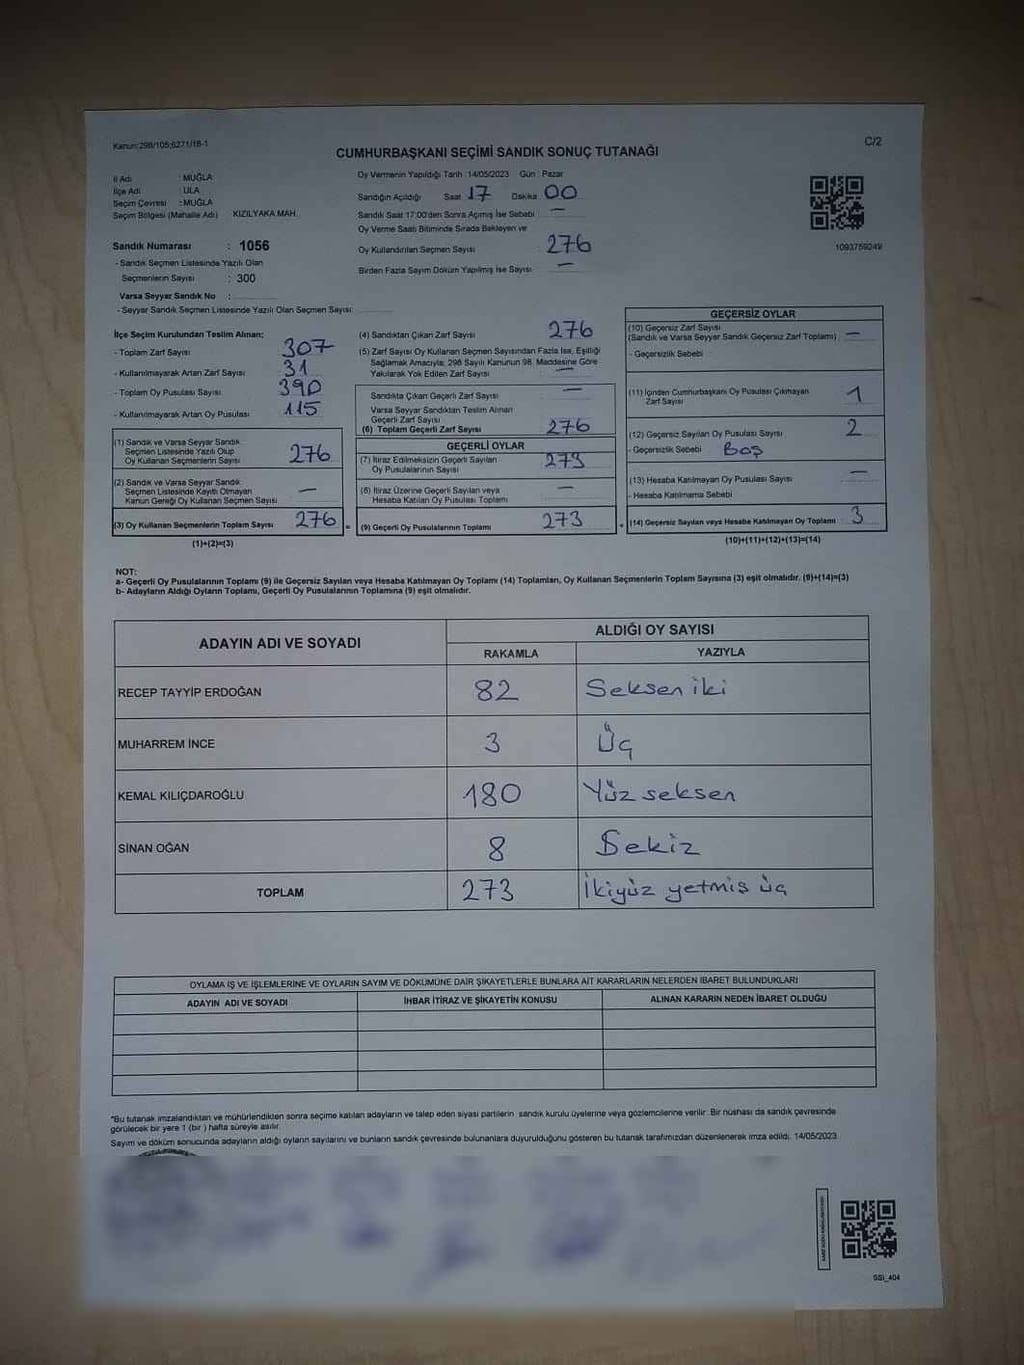 Kanun:298/105;6271/18-1
C/2
CUMHURBAŞKANI SEÇİMİ SANDIK SONUÇ TUTANAĞI
İl Adı : MUĞLA
İlçe Adı : ULA
Seçim Çevresi : MUĞLA
Seçim Bölgesi (Mahalle Adı) KIZILYAKA MAH.
Sandık Numarası : 1056
- Sandık Seçmen Listesinde Yazılı Olan
Seçmenlerin Sayısı : 300
Varsa Seyyar Sandık No :
- Seyyar Sandık Seçmen Listesinde Yazılı Olan Seçmen Sayısı:
Oy Vermenin Yapıldığı Tarih :14/05/2023 Gün : Pazar
Sandığın Açıldığı Saat 17 Dakika 00
Sandık Saat 17:00'den Sonra Açımış İse Sebebi : —
Oy Verme Saati Bitiminde Sırada Bekleyen ve
Oy Kullandırılan Seçmen Sayısı : 276
Birden Fazla Sayım Döküm Yapılmış İse Sayısı : —
1093759249
İlçe Seçim Kurulundan Teslim Alınan;
- Toplam Zarf Sayısı 307
- Kullanılmayarak Artan Zarf Sayısı 31
- Toplam Oy Pusulası Sayısı 390
- Kullanılmayarak Artan Oy Pusulası 115
(1) Sandık ve Varsa Seyyar Sandık
Seçmen Listesinde Yazılı Olup
Oy Kullanan Seçmenlerin Sayısı 276
(2) Sandık ve Varsa Seyyar Sandık
Seçmen Listesinde Kayıtlı Olmayan
Kanun Gereği Oy Kullanan Seçmen Sayısı —
(3) Oy Kullanan Seçmenlerin Toplam Sayısı 276 =
(1)+(2)=(3)
(4) Sandıktan Çıkan Zarf Sayısı 276
(5) Zarf Sayısı Oy Kullanan Seçmen Sayısından Fazla İse, Eşitliği
Sağlamak Amacıyla; 298 Sayılı Kanunun 98. Maddesine Göre
Yakılarak Yok Edilen Zarf Sayısı —
Sandıkta Çıkan Geçerli Zarf Sayısı —
Varsa Seyyar Sandıktan Teslim Alınan
Geçerli Zarf Sayısı
(6) Toplam Geçerli Zarf Sayısı 276
GEÇERLİ OYLAR
(7) İtiraz Edilmeksizin Geçerli Sayılan
Oy Pusulalarının Sayısı 273
(8) İtiraz Üzerine Geçerli Sayılan veya
Hesaba Katılan Oy Pusulası Toplamı —
(9) Geçerli Oy Pusulalarının Toplamı 273 +
GEÇERSİZ OYLAR
(10) Geçersiz Zarf Sayısı
(Sandık ve Varsa Seyyar Sandık Geçersiz Zarf Toplamı) —
- Geçersizlik Sebebi
(11) İçinden Cumhurbaşkanı Oy Pusulası Çıkmayan
Zarf Sayısı 1
(12) Geçersiz Sayılan Oy Pusulası Sayısı 2
- Geçersizlik Sebebi Boş
(13) Hesaba Katılmayan Oy Pusulası Sayısı —
- Hesaba Katılmama Sebebi
(14) Geçersiz Sayılan veya Hesaba Katılmayan Oy Toplamı 3
(10)+(11)+(12)+(13)=(14)
NOT:
a- Geçerli Oy Pusulalarının Toplamı (9) ile Geçersiz Sayılan veya Hesaba Katılmayan Oy Toplamı (14) Toplamları, Oy Kullanan Seçmenlerin Toplam Sayısına (3) eşit olmalıdır. (9)+(14)=(3)
b- Adayların Aldığı Oyların Toplamı, Geçerli Oy Pusulalarının Toplamına (9) eşit olmalıdır.
ADAYIN ADI VE SOYADI
ALDIĞI OY SAYISI
RAKAMLA YAZIYLA
RECEP TAYYİP ERDOĞAN 82 Seksen iki
MUHARREM İNCE 3 Üç
KEMAL KILIÇDAROĞLU 180 Yüz seksen
SİNAN OĞAN 8 Sekiz
TOPLAM 273 İkiyüz yetmiş üç
OYLAMA İŞ VE İŞLEMLERİNE VE OYLARIN SAYIM VE DÖKÜMÜNE DAİR ŞİKAYETLERLE BUNLARA AİT KARARLARIN NELERDEN İBARET BULUNDUKLARI
ADAYIN ADI VE SOYADI İHBAR İTİRAZ VE ŞİKAYETİN KONUSU ALINAN KARARIN NEDEN İBARET OLDUĞU
*Bu tutanak imzalandıktan ve mühürlendikten sonra seçime katılan adayların ve talep eden siyasi partilerin sandık kurulu üyelerine veya gözlemcilerine verilir. Bir nüshası da sandık çevresinde
görülecek bir yere 1 (bir) hafta süreyle asılır.
Sayım ve döküm sonucunda adayların aldığı oyların sayılarını ve bunların sandık çevresinde bulunanlara duyurulduğunu gösteren bu tutanak tarafımızdan düzenlenerek imza edildi. 14/05/2023
GSI_404